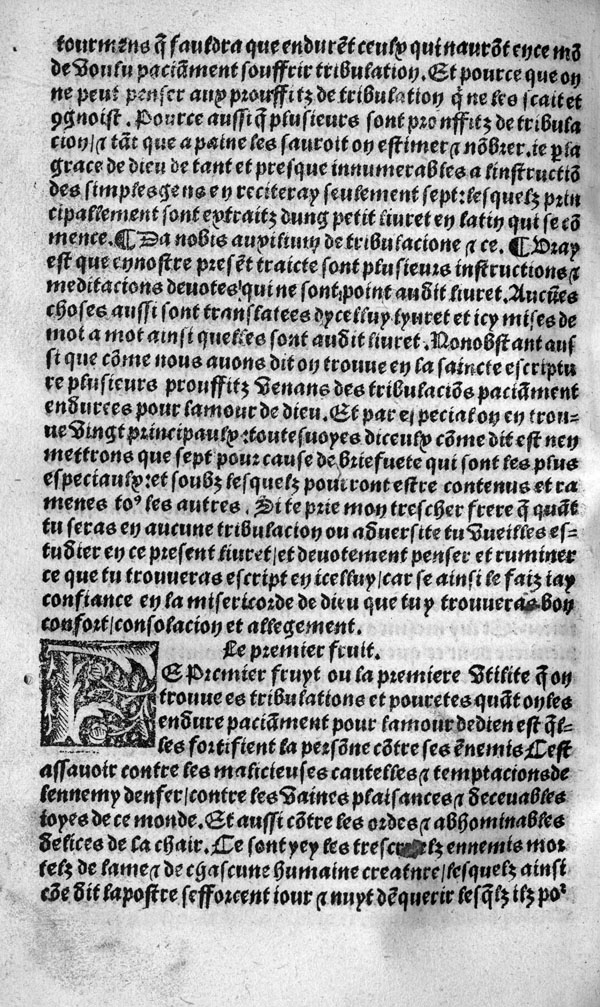 tourmens q̃ fauldra que endurẽt ceulx qui naurõt en ce mõ
de voulu paciãment souffrir tribulation. Et pource que on
ne peut penser aux prouffitz de tribulation q̃ ne les scait et
ꝯgnoist. Pource aussi q̃ plusieurs sont prouffitz de tribula
cion/⁊ tãt que a paine les sauroit on estimer ⁊ nõbrer. ie p̱ la
grace de dieu de tant et presque innumerables a linstructiõ
des simples gens en reciteray seulement sept: lesquelz prin
cipallement sont extraitz dung petit liuret en latin qui se cõ
mence. ¶ Da nobis auxilium de tribulacione ⁊ ce. ¶ Vray
est que en nostre presẽt traicte sont plusieurs instructions ⁊
meditacions deuotes/ qui ne sont point audit liuret. Aucũes
choses aussi sont translatees dycelluy lyuret et icy mises de
mot a mot ainsi quelles sont audit liuret. Nonobstant aus
si que cõme nous auons dit on trouue en la saincte escriptu
re plusieurs prouffitz venans des tribulaciõs paciãment
endurees pour lamour de dieu. Et par especial on en trou-
ue vingt principaulx: toutesuoyes diceulx cõme dit est nen
mettrons que sept pour cause de briefuete qui sont les plus
especiaulx: et soubz lesquelz pourront estre contenus et ra
menes toꝰ les autres. Si te prie mon trescher frere q̃ quãt
tu seras en aucune tribulacion ou aduersite tu vueilles es-
tudier en ce present liuret/et deuotement penser et ruminer
ce que tu trouueras escript en icelluy/car se ainsi le faiz iay
confiance en la misericorde de dieu que tu y trouueras bon
confort/consolacion et allegement.
Le premier fruit.
LE Premier fruyt ou la premiere vtilite q̃ on
trouue es tribulations et pouretes quãt on les
endure paciãment pour lamour dedieu est q̃l-
les fortifient la persõne cõtre ses ẽnemis Cest
assauoir contre les malicieuses cautelles ⁊ temptacions de
lennemy denfer/contre les vaines plaisances ⁊ deceuables
ioyes de ce monde. Et aussi cõtre les ordes ⁊ abhominables
delices de la chair. Ce sont yey les ennemis mor
telz de lame ⁊ de chascune humaine creature/lesquelz ainsi
cõe dit lapostre sefforcent iour ⁊ nuyt dẽquerir lesq̃lz ilz poꝰ